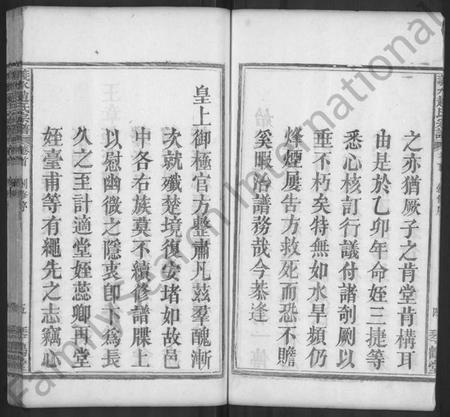 之亦猶厥子之肯堂肯構耳
由是於乙卯年命姪三捷等
悉心核訂行議付諸剞劂以
垂不朽矣特無如水旱頻仍
烽煙屢告方救死而恐不贍
奚暇治譜務哉今恭逢
皇上御極官方整肅凡茲羣醜漸
次就殲楚境復安堵如故邑
中各右族莫不續修譜牒上
以慰幽微之隱衷卽下為長
久之至計適堂姪蕊卿再堂
姪臺甫等有繩先之志竊心
FamilySearch International